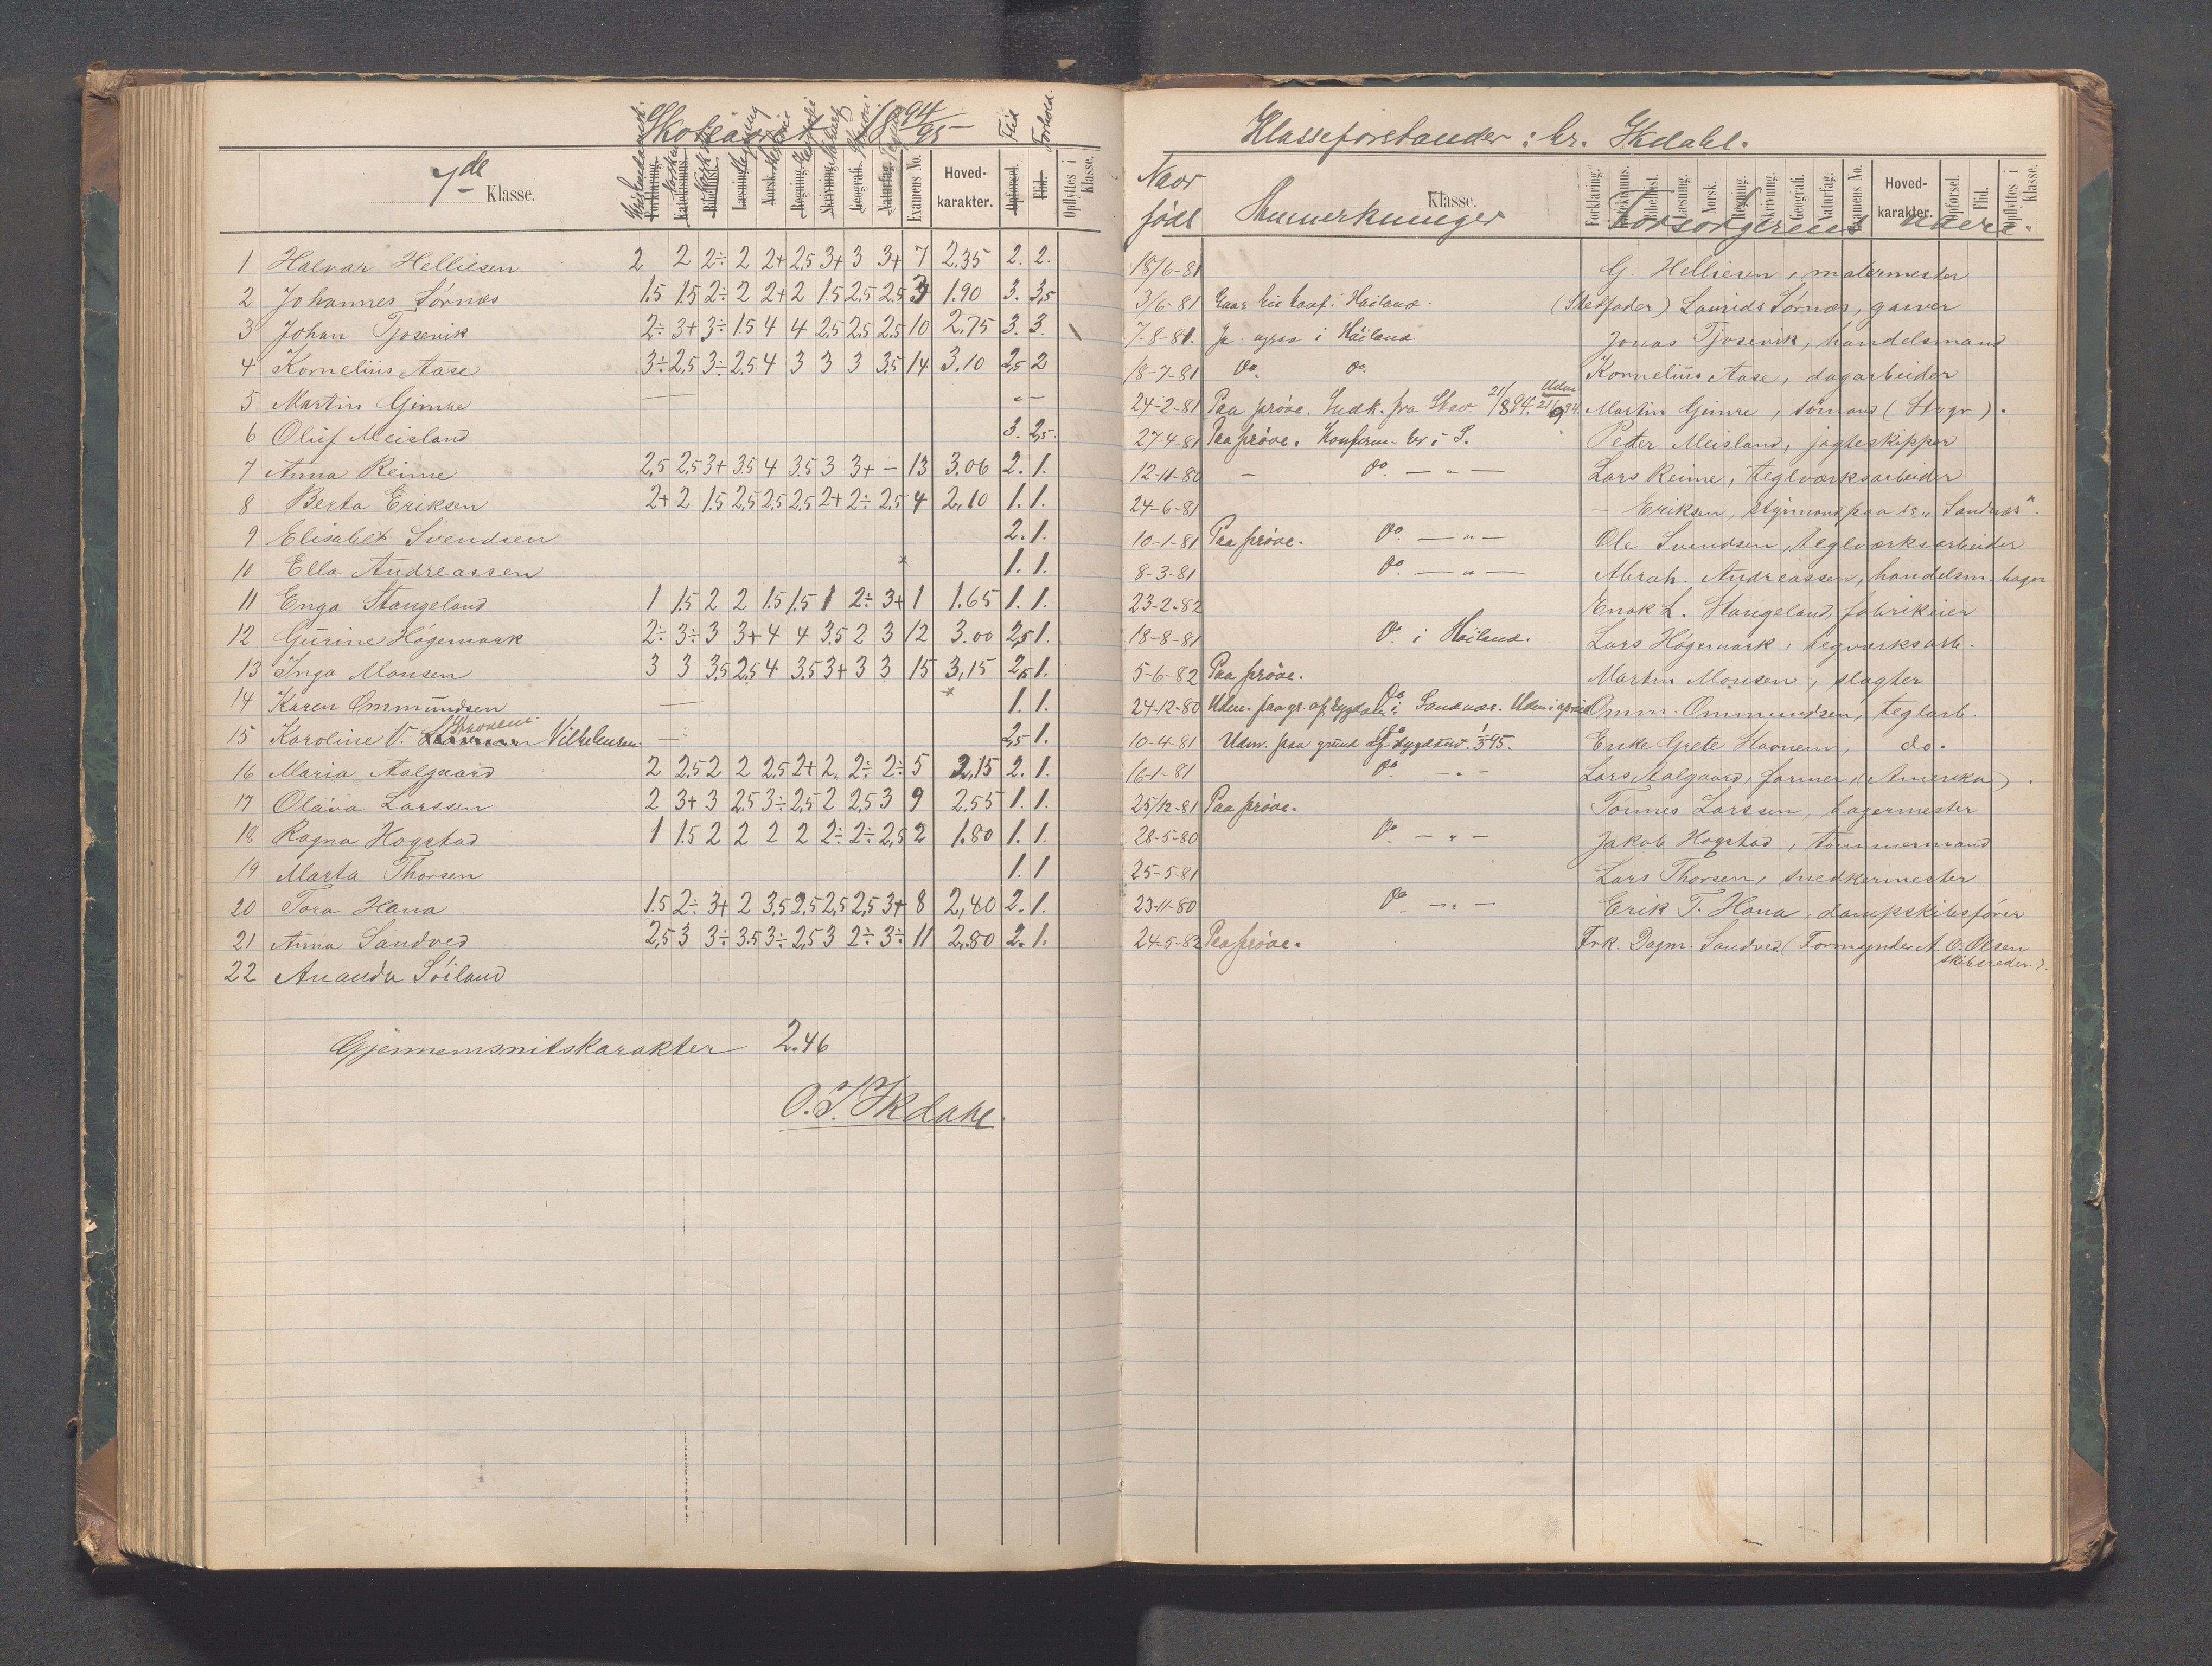 Skoleaaret 1894/95
7de Klasse.
Forklaring. Katekismus. Bibelhist. Læsning. Norsk. Regning. Skrivning. Geografi. Naturfag. Examens No. Hoved-karakter. Opførsel. Flid. Opflyttes i Klasse.
Flid Forhold.
1 Halvar Helliesen 2 2 2÷ 2 2+ 2,5 3+ 3 3+ 7 2.35 2. 2.
2 Johannes Sørnæs 1.5 1.5 2÷ 2 2+ 2 1.5 2,5 2,5 3 1.90 3. 3,5
3 Johan Tjosevik 2÷ 3+ 3÷ 1.5 4 4 2,5 2,5 2,5 10 2,75 3. 3.
4 Kornelius Aase 3÷ 2,5 3÷ 2,5 4 3 3 3 3,5 14 3.10 2,5 2
5 Martin Gimre — " —
6 Oluf Meisland 3. 2,5.
7 Anna Reime 2,5 2,5 3+ 3.5 4 3.5 3 3+ — 13 3.06 2. 1.
8 Berta Eriksen 2+ 2 1.5 2,5 2,5 2,5 2+ 2÷ 2,5 4 2,10 1. 1.
9 Elisabet Svendsen 2. 1.
10 Ella Andreassen 1. 1.
11 Enga Stangeland 1 1.5 2 2 1.5 1.5 1 2÷ 3+ 1 1.65 1. 1.
12 Gurine Høgemark 2÷ 3÷ 3 3+ 4 4 3.5 2 3 12 3.00 2,5 1.
13 Inga Monsen 3 3 3,5 2,5 4 3,5 3+ 3 3 15 3,15 2,5 1.
14 Karen Ommundsen — 1. 1.
15 Karoline V. Havnem Vilhelmsen. — 2,5 1.
16 Maria Aalgaard 2 2,5 2 2 2,5 2+ 2. 2÷ 2÷ 5 2,15 2. 1.
17 Olava Larssen 2 3+ 3 2,5 3÷ 2,5 2 2,5 3 9 2,55 1. 1.
18 Ragna Hogstad 1 1.5 2 2 2 2 2÷ 2÷ 2,5 2 1.80 1. 1.
19 Marta Thorsen 1. 1
20 Tora Hana 1.5 2÷ 3+ 2 3,5 2,5 2,5 2,5 3+ 8 2,40 2. 1.
21 Anna Sandved 2,5 3 3÷ 3.5 3÷ 2,5 3 2÷ 3÷ 11 2,80 2. 1.
22 Ananda Soiland
Gjennemsnitskarakter 2.46
O. T. Skdahl.
Klasseforstander: hr. Skdahl.
Naar født Anmerkninger Klasse. Forsørgerens navn.
Forklaring. Katekismus. Bibelhist. Læsning. Norsk. Regning. Skrivning. Geografi. Naturfag. Examens No. Hoved-karakter. Opførsel. Flid. Opflyttes i Klasse.
18/6-81 G. Helliesen, malermester
3/6-81 i Høiland. (Stedfader) Laurids Sørnæs, garver
7-8-81. ogsaa i Høiland. Jonas Tjosevik, handelsmand
18-7-81 Do. Do. Kornelius Aase, dagarbeider
24-2-81 Paa prøve. Indk. fra Stav. 21/8 94. Udm. 21/9 94. Martin Gimre, sømand (Stvgr).
27-4-81 Paa prøve. Konfirm. her i S. Peder Meisland, jagteskipper
12-11-80 — Do. — " — Lars Reime, teglværksarbeider
24-6-81 — Eriksen, styrmand paa ds. „Sandnæs".
10-1-81 Paa prøve. Do. — " — Ole Svendsen, teglværksarbeider
8-3-81 Do. — " — Abrah. Andreassen, handelsm. bager
23-2-82 Enok L. Stangeland, fabrikeier
18-8-81 Do. i Høiland. Lars Høgemark, tegværksarb.
5-6-82 Paa prøve. Martin Monsen, slagter
24-12-80 Udm. paa gr. af sygdom i Sandnæs. Udm i april Omm. Ommundsen, teglarb.
10-4-81 Udm. paa grund af sygdom. 1/3 95. Enke Grete Havnem, do.
16-1-81 Do. — " — Lars Aalgaard, farmer, (Amerika).
25/12-81 Paa prøve. Tønnes Larssen, bagermester
28-5-80 Do. — " — Jakob Hogstad, tømmermand
25-5-81 Lars Thorsen, snedkermester
23-11-80 Do. — " — Erik T. Hana, dampskibsfører
24-5-82 Paa prøve. Frk. Dagm. Sandved (Formynder A. O. Olsen
skibsreder.).